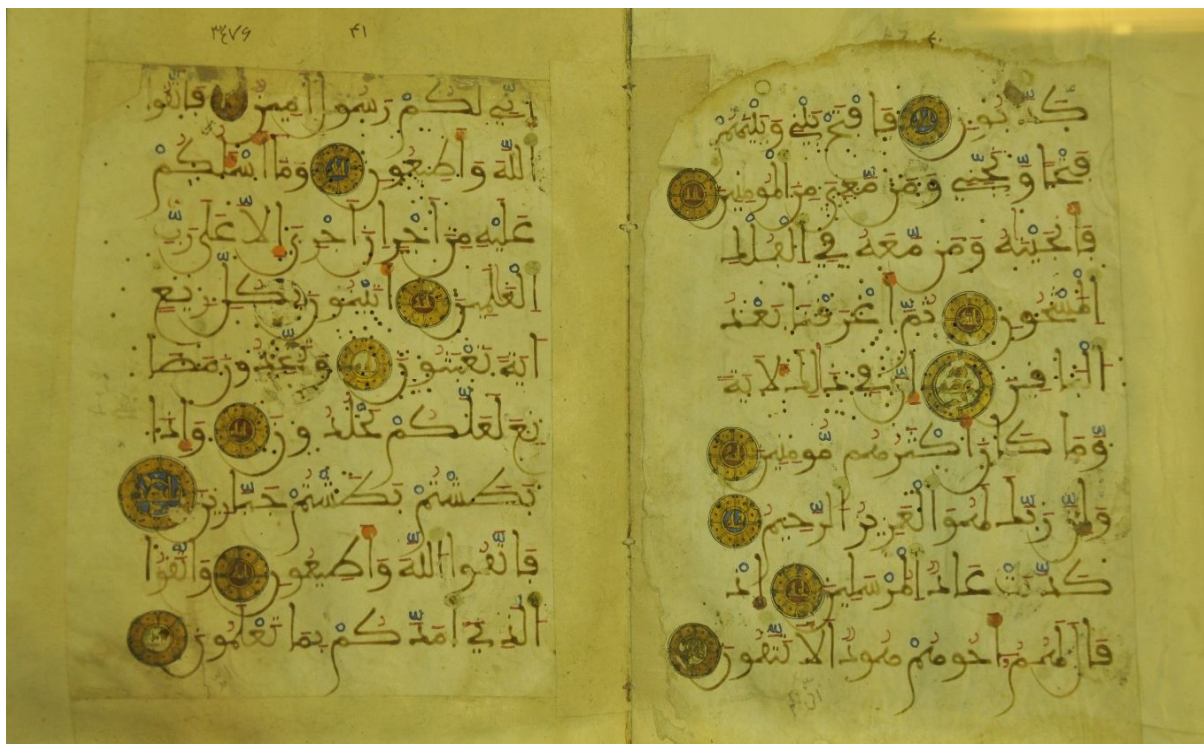 كَذَّبُونِ فَافْتَحْ بَيْنِي وَبَيْنَهُمْ
فَتْحًا وَنَجِّنِي وَمَن مَّعِي مِنَ الْمُومِنِينَ
فَأَنجَيْنَٰهُ وَمَن مَّعَهُ فِي الْفُلْكِ
الْمَشْحُونِ ثُمَّ أَغْرَقْنَا بَعْدُ
الْبَاقِينَ إِنَّ فِي ذَٰلِكَ لَآيَةً
وَمَا كَانَ أَكْثَرُهُم مُّومِنِينَ
وَإِنَّ رَبَّكَ لَهُوَ الْعَزِيزُ الرَّحِيمُ
كَذَّبَتْ عَادٌ الْمُرْسَلِينَ إِذْ
قَالَ لَهُمْ أَخُوهُمْ هُودٌ أَلَا تَتَّقُونَ
٣٤٧٦ ٤١
إِنِّي لَكُمْ رَسُولٌ أَمِينٌ فَاتَّقُوا
اللَّهَ وَأَطِيعُونِ وَمَا أَسْـَٔلُكُمْ
عَلَيْهِ مِنْ أَجْرٍ إِنْ أَجْرِيَ إِلَّا عَلَىٰ رَبِّ
الْعَٰلَمِينَ أَتَبْنُونَ بِكُلِّ رِيعٍ
ءَايَةً تَعْبَثُونَ وَتَتَّخِذُونَ مَصَا
نِعَ لَعَلَّكُمْ تَخْلُدُونَ وَإِذَا
بَطَشْتُم بَطَشْتُمْ جَبَّارِينَ
فَاتَّقُوا اللَّهَ وَأَطِيعُونِ وَاتَّقُوا
الَّذِي أَمَدَّكُم بِمَا تَعْلَمُونَ